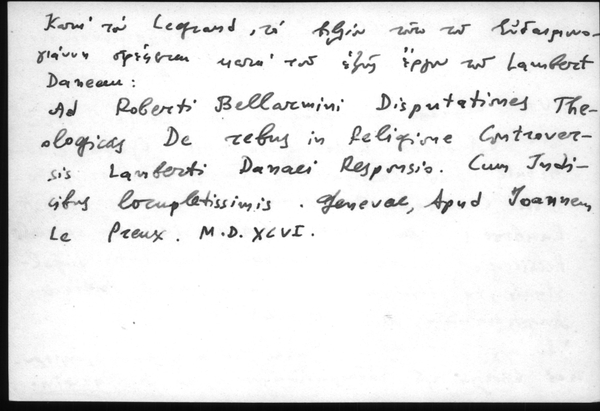 Κατά τόν Legrand, τό βιβλίο τοῦτο τοῦ Εὐδαιμονο-
γιάννη στρέφεται κατά τοῦ ἑξῆς ἔργου τοῦ Lambert
Daneau:
Ad Roberti Bellarmini Disputationes The-
ologicas De rebus in Religione Controver-
sis Lamberti Danaei Responsio. Cum Indi-
cibus locupletissimis. Genevae, Apud Joannem
Le Preux. M.D.XCVI.